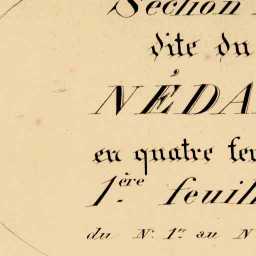 Section
dite du
NÉDA
en quatre feu
1ère feuill
du N. 1er au N